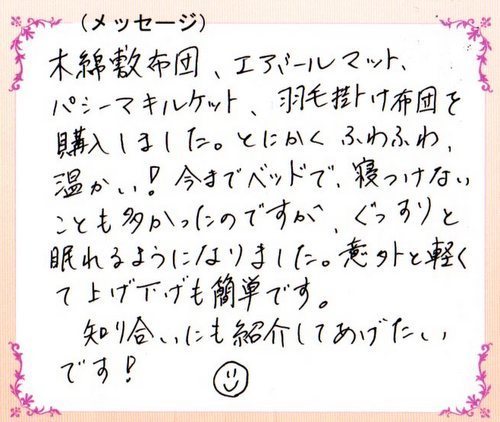 （メッセージ）
木綿敷布団、エアパールマット、
パシーマキルケット、羽毛掛け布団を
購入しました。とにかくふわふわ、
温かい！今までベッドで、寝つけない
ことも多かったのですが、ぐっすりと
眠れるようになりました。意外と軽く
て上げ下げも簡単です。
知り合いにも紹介してあげたい
です！